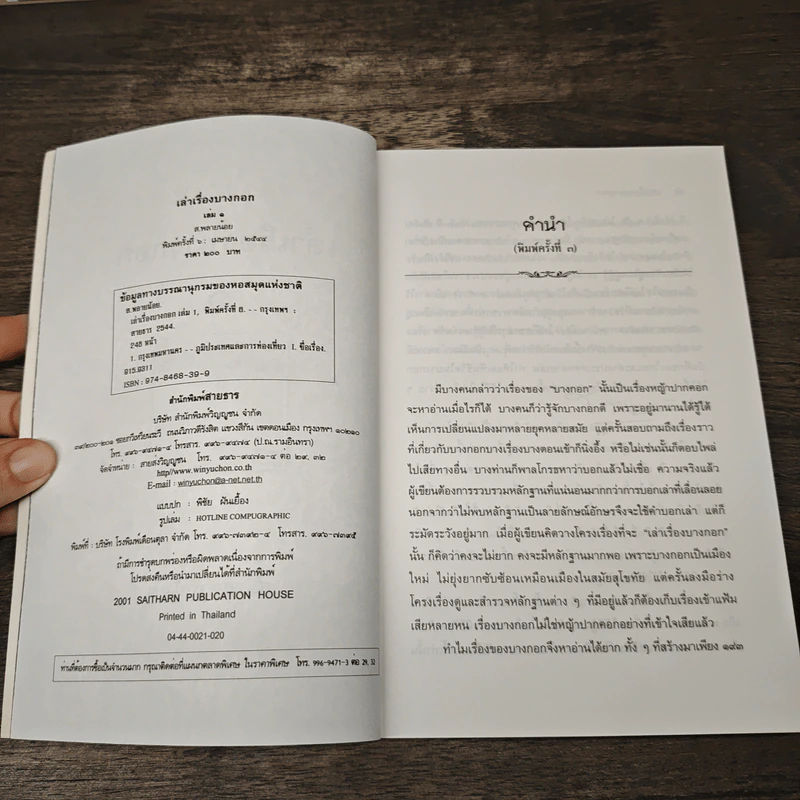 เล่าเรื่องบางกอก
เล่ม ๑
ส.พลายน้อย
พิมพ์ครั้งที่ ๖ : เมษายน ๒๕๔๔
ราคา ๒๐๐ บาท
ข้อมูลทางบรรณานุกรมของหอสมุดแห่งชาติ
ส.พลายน้อย.
เล่าเรื่องบางกอก เล่ม 1, พิมพ์ครั้งที่ 6. -- กรุงเทพฯ :
สายธาร 2544.
248 หน้า
1. กรุงเทพมหานคร -- ภูมิประเทศและการท่องเที่ยว I. ชื่อเรื่อง.
915.9311
ISBN : 974-8468-39-9
สำนักพิมพ์สายธาร
บริษัท สำนักพิมพ์วิญญูชน จำกัด
๓๙/๒๐๐-๒๐๑ ซอยทวีวัฒนะวี ถนนวิภาวดีรังสิต แขวงสีกัน เขตดอนเมือง กรุงเทพฯ ๑๐๒๑๐
โทร. ๙๙๖-๙๔๗๑-๔ โทรสาร. ๙๙๖-๙๔๗๔ (ป.ณ.รามอินทรา)
จัดจำหน่าย : สายส่งวิญญูชน โทร. ๙๙๖-๙๔๗๑-๔ ต่อ ๒๙, ๓๒
http//www.winyuchon.co.th
E-mail : winyuchon@a-net.net.th
แบบปก : พิชัย ผันเยื้อง
รูปเล่ม : HOTLINE COMPUGRAPHIC
พิมพ์ที่ : บริษัท โรงพิมพ์เดือนตุลา จำกัด โทร. ๙๙๖-๗๓๙๒-๔ โทรสาร. ๙๙๖-๗๓๙๕
ถ้ามีการชำรุดบกพร่องหรือผิดพลาดเนื่องจากการพิมพ์
โปรดส่งคืนหรือนำมาเปลี่ยนได้ที่สำนักพิมพ์
2001 SAITHARN PUBLICATION HOUSE
Printed in Thailand
04-44-0021-020
ท่านที่ต้องการซื้อเป็นจำนวนมาก กรุณาติดต่อที่แผนกตลาดพิเศษ ในราคาพิเศษ โทร. 996-9471-3 ต่อ 29, 32
คำนำ
(พิมพ์ครั้งที่ ๓)
มีบางคนกล่าวว่าเรื่องของ "บางกอก" นั้นเป็นเรื่องหญ้าปากคอก
จะหาอ่านเมื่อไรก็ได้ บางคนก็ว่ารู้จักบางกอกดี เพราะอยู่มานานได้รู้ได้
เห็นการเปลี่ยนแปลงมาหลายยุคหลายสมัย แต่ครั้นสอบถามถึงเรื่องราว
ที่เกี่ยวกับบางกอกบางเรื่องบางตอนเข้าก็นิ่งอึ้ง หรือไม่เช่นนั้นก็ตอบไพล่
ไปเสียทางอื่น บางท่านก็พาลโกรธหาว่าบอกแล้วไม่เชื่อ ความจริงแล้ว
ผู้เขียนต้องการรวบรวมหลักฐานที่แน่นอนมากกว่าการบอกเล่าที่เลื่อนลอย
นอกจากว่าไม่พบหลักฐานเป็นลายลักษณ์อักษรจึงจะใช้คำบอกเล่า แต่ก็
ระมัดระวังอยู่มาก เมื่อผู้เขียนคิดวางโครงเรื่องที่จะ "เล่าเรื่องบางกอก"
นั้น ก็คิดว่าคงจะไม่ยาก คงจะมีหลักฐานมากพอ เพราะบางกอกเป็นเมือง
ใหม่ ไม่ยุ่งยากซับซ้อนเหมือนเมืองในสมัยสุโขทัย แต่ครั้นลงมือร่าง
โครงเรื่องดูและสำรวจหลักฐานต่าง ๆ ที่มีอยู่แล้วก็ต้องเก็บเรื่องเข้าแฟ้ม
เสียหลายหน เรื่องบางกอกไม่ใช่หญ้าปากคอกอย่างที่เข้าใจเสียแล้ว
ทำไมเรื่องของบางกอกจึงหาอ่านได้ยาก ทั้ง ๆ ที่สร้างมาเพียง ๑๙๓